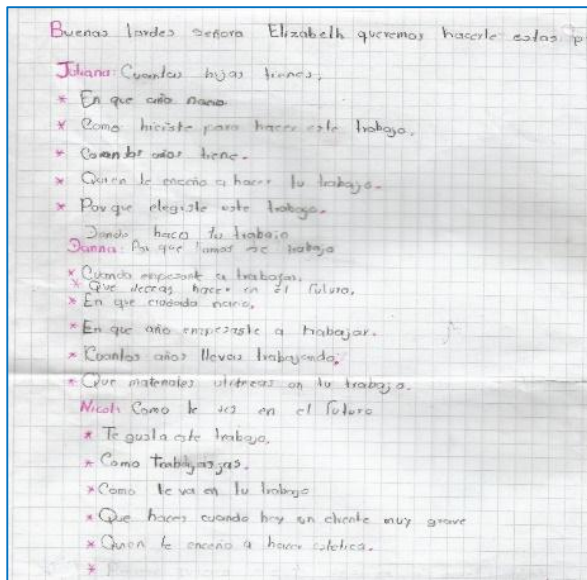 Buenas tardes señora Elizabeth queremos hacerle estas p
Juliana: Cuantas hijas tienes.
* En que año nacio
* Como hiciste para hacer este trabajo.
* Cuantos años tiene.
* Quien le enceño a hacer tu trabajo.
* Por que elegiste este trabajo.
Donde haces tu trabajo
Danna: Por que ese trabajo
* Cuando empesaste a trabajar.
* Que deceas hacer en el futuro.
* En que ciudada nacio.
* En que año empesaste a trabajar.
* Cuantos años llevas trabajando.
* Que materiales utilizas en tu trabajo.
Nicol: Como te ves en el futuro
* Te gusta este trabajo.
* Como
* Como le va en tu trabajo
* Que haces cuando hay un cliente muy grave
* Quien te enceño a hacer estetica.
*